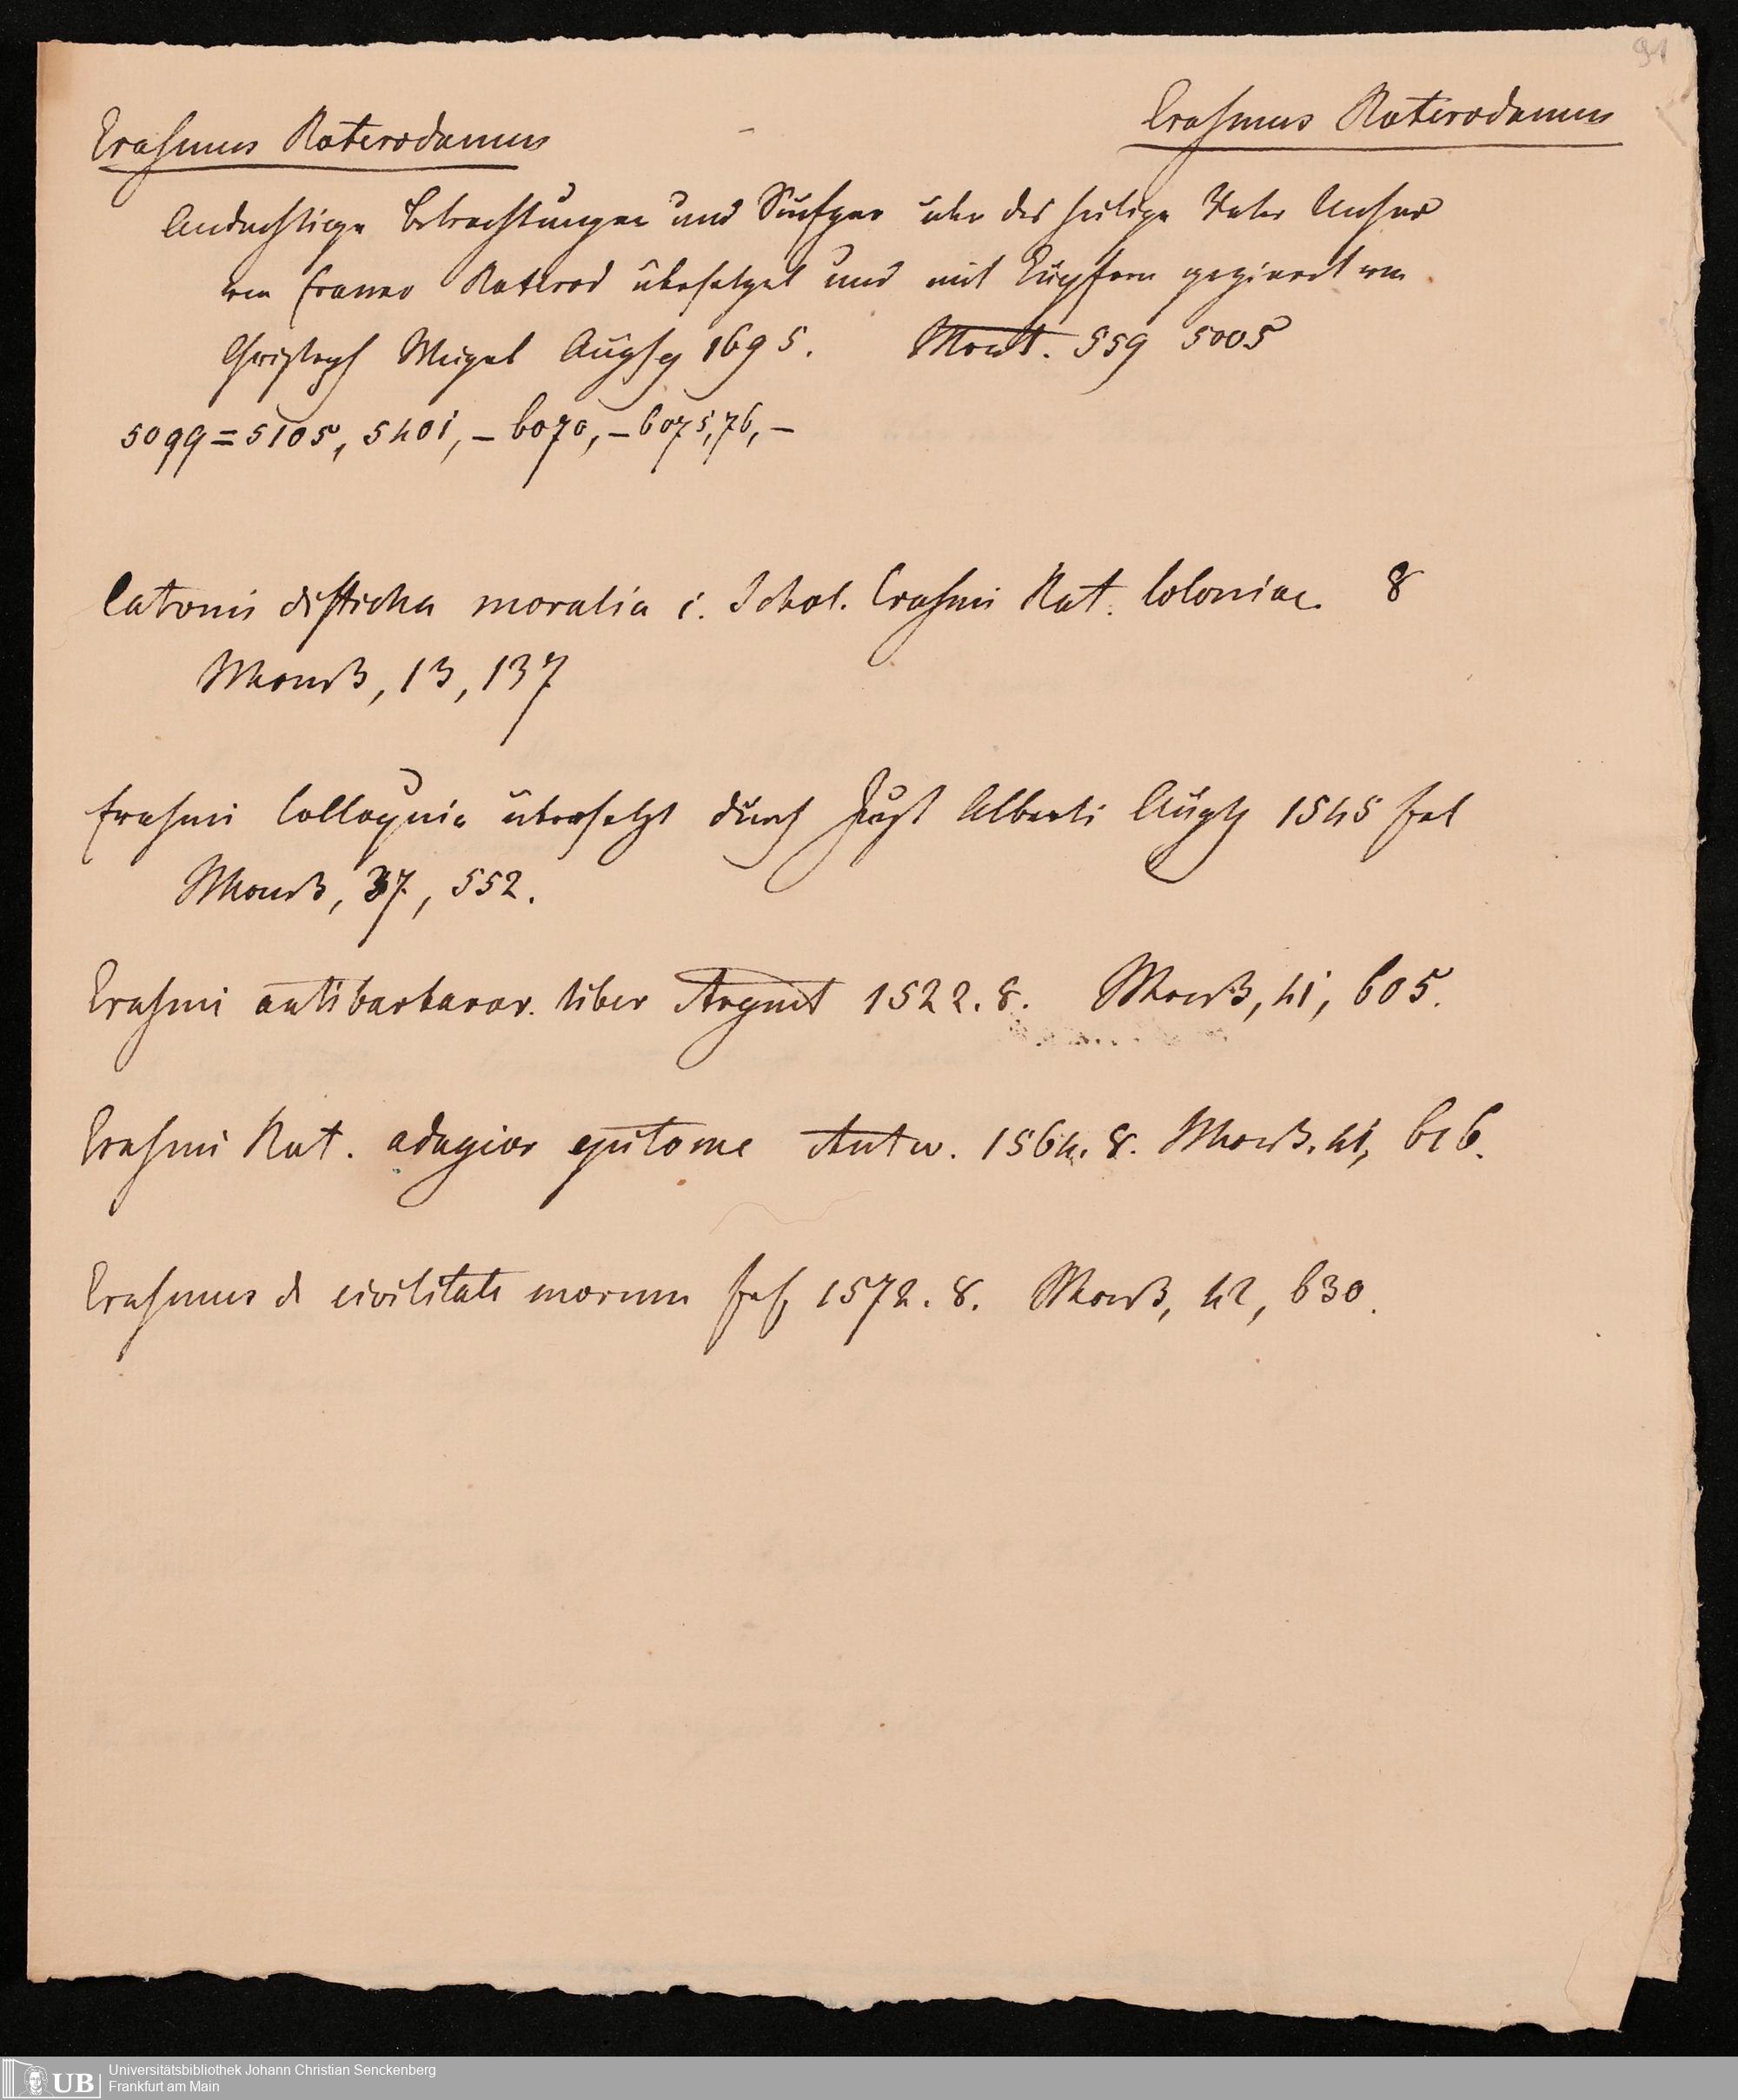 91
Erasmus Roterodamus
Erasmus Roterodamus
Andächtige Betrachtungen und Seufzer über das heilige Vater Unser
von Erasmo Roterod übersetzet und mit Kupfern gezieret von
Christoph Weigel Augsbg 1695. Mont. 559 5005
5099=5105, 5401, – 6070, – 6075, 76, –
Catonis disticha moralia c. Schol. Erasmi Rot. Coloniae. 8
13, 137
Erasmi Colloquia übersetzt durch Just Alberti Augsb 1545 fol
37, 552.
Erasmi antibarbaror. liber Argent 1522. 8. 41, 605.
Erasmi Rot. adagior epitome Antw. 1564. 8. 41, 616.
Erasmus de civilitate morum 1572. 8. 42, 630.
UB
Universitätsbibliothek Johann Christian Senckenberg
Frankfurt am Main